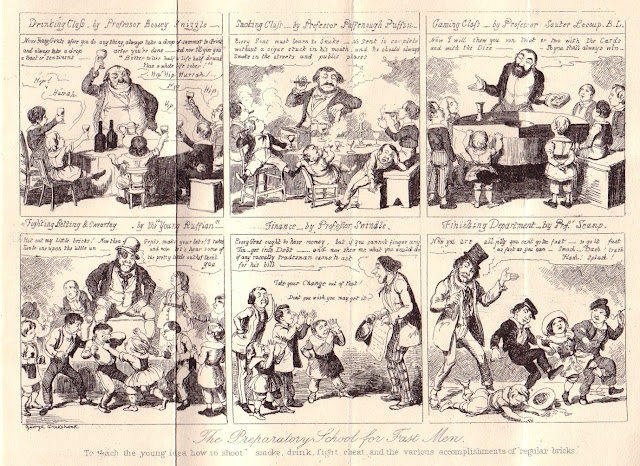 Drinking Class _ by Professor Boosey Swizzle _
Now Young Gents after you do any thing always take a drop of summat to drink
and always take a drop after you're done _ and now I'll give you
a toast or sentiment "Better to be half a life half drunk
Than a whole life sober" !!!
Hip! Hip! Hurrah!
Hip!
Hurrah
Hip
Hip.
Smoking Class _ by Professor Puffenough Puffin _
Every Gent must learn to Smoke _ No Gent is complete
without a cigar stuck in his mouth and he should always
Smoke in the streets and public places
Gaming Class _ by Professor Sauter Lecoup. B.L.
Now I will show you von Trick or two with the Cards
and with the Dice _ So you shall always win _
Fighting Petting & Swearing _ by the "Young Ruffian"
Hit out my little bricks! Now then
Gents, make your bets! I
and now let's hear some of
the pretty little oaths I taught
you
Finance _ by Professor Swindle.
Every Gent ought to have money, but if you cannot finger any
Tin _ get into Debt _ and now show me what you would do
if any rascally tradesman came to ask
for his bill _
Take your Change out of that!
Don't you wish you may get it?
Finishing Department _ by Prof.r Scamp.
Now you are all jolly you cant go too fast _ so go it fast
as fast as you can _ Smash. Dash! Crash
Flash! Splash!
George Cruikshank
The Preparatory School for Fast Men.
To "teach the young idea how to shoot" smoke, drink, fight, cheat, and the various accomplishments of regular bricks.